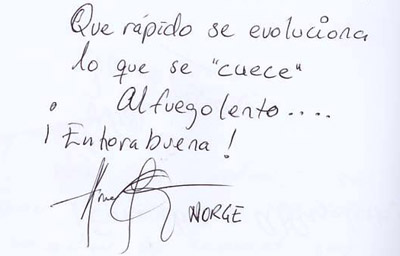 Que rápido se evoluciona
lo que se "cuece"
Alfuegolento....
¡Enhorabuena!
NORGE